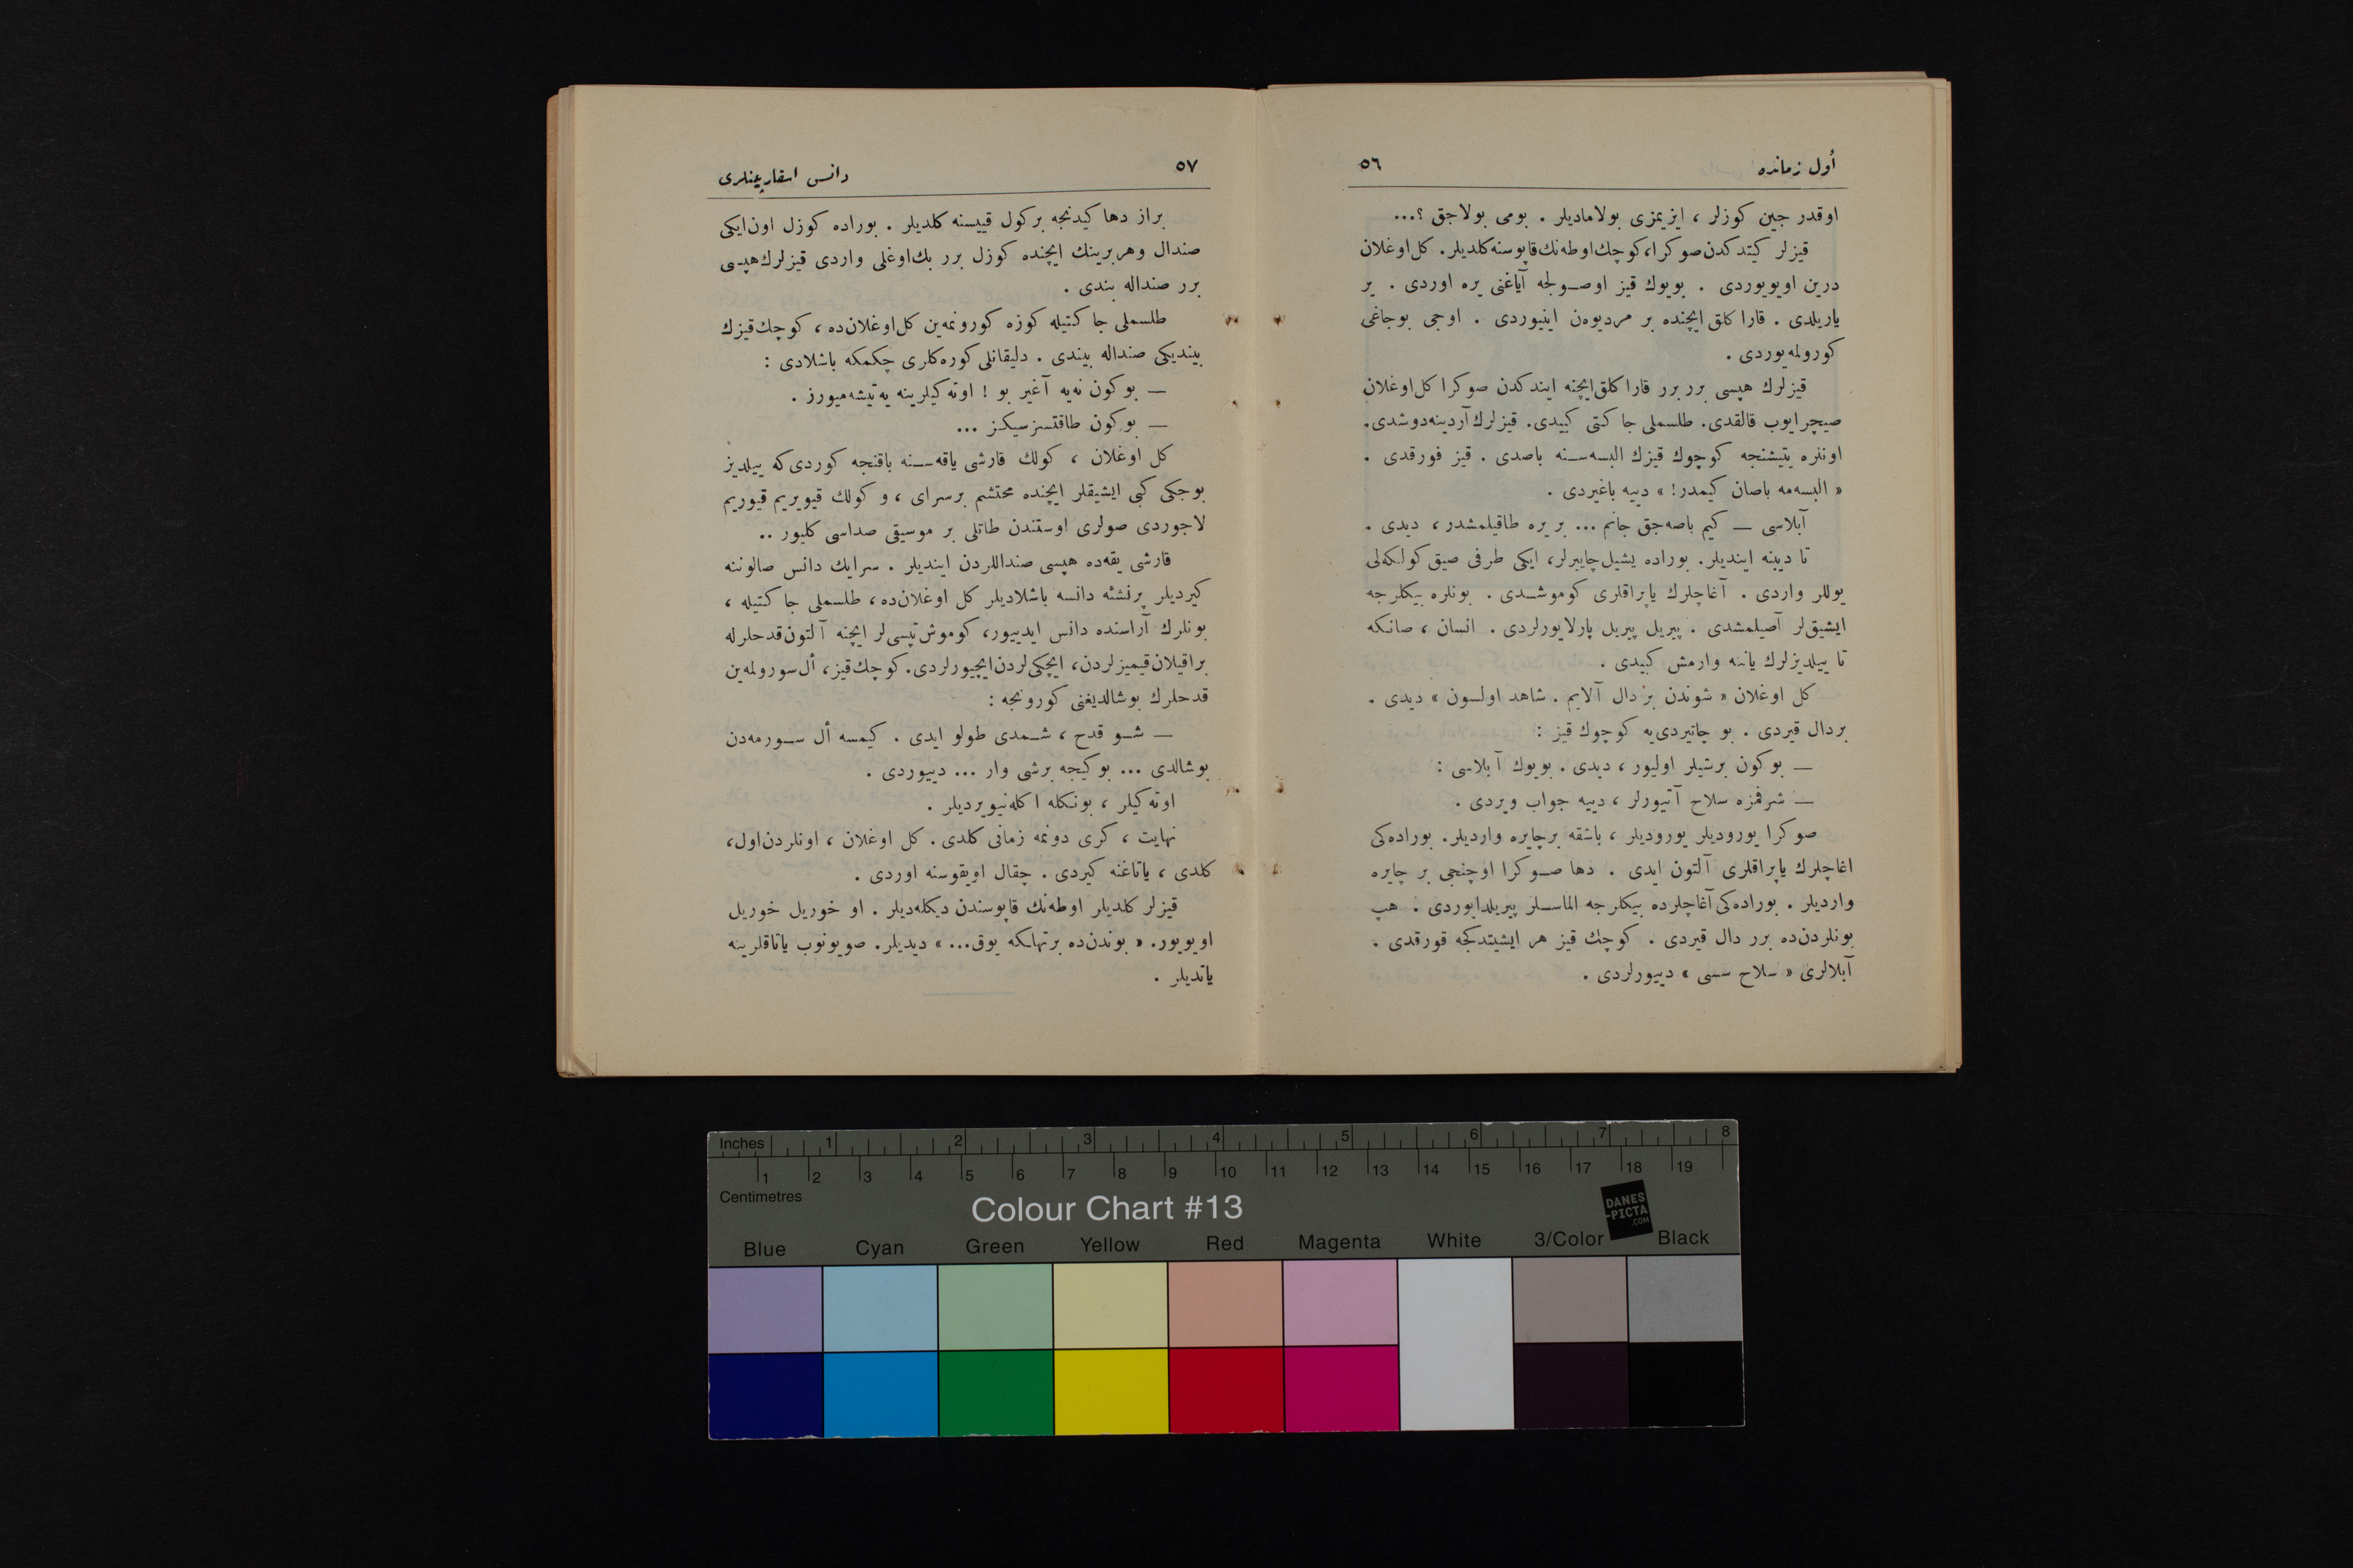 أول زمانده
٥٦
اوقدر جین کوزلر ، ایزیمزی بولامادیلر . بومی بولاجق ؟...
قیزلر کیتدکدن صوکرا، کوچك اوطه‌نك قاپوسنه کلدیلر. کل اوغلان
درین اویویوردی . بویوك قیز اوصولجه آیاغنی یره اوردی . یر
یاریلدی . قارا کلق ایچنده بر مردیوه‌ن اینیوردی . اوجی بوجاغی
کورولمه‌یوردی .
قیزلرك هپسی برر برر قارا کلق ایچنه ایندکدن صوکرا کل اوغلان
صیچرایوب قالقدی. طلسملی جا کتی کییدی. قیزلرك آردینه دوشدی.
اونلره یتیشنجه کوچوك قیزك البسه‌سنه باصدی . قیز قورقدی .
« البسه‌مه باصان کیمدر! » دییه باغیردی .
آبلاسی — کیم باصه‌جق جانم ... بر یره طاقیلمشدر ، دیدی .
تا دیبنه ایندیلر. بوراده یشیل چایرلر، ایکی طرفی صیق کولکه‌لی
یوللر واردی . آغاچلرك یاپراقلری کوموشدی . بونلره بیکلرجه
ایشیق‌لر آصیلمشدی . پیریل پیریل پارلایورلردی . انسان ، صانکه
تا ییلدیزلرك یاننه وارمش کبیدی .
کل اوغلان « شوندن بر دال آلایم . شاهد اولسون » دیدی .
بردال قیردی . بو چاتیردی‌یه کوچوك قیز :
— بوکون برشیلر اولیور ، دیدی . بویوك آبلاسی :
— شرفمزه سلاح آتیورلر ، دییه جواب ویردی .
صوکرا یورودیلر یورودیلر ، باشقه برچایره واردیلر. بوراده‌کی
اغاچلرك یاپراقلری آلتون ایدی . دها صوکرا اوچنجی بر چایره
واردیلر . بوراده‌کی آغاچلرده بیکلرجه الماسلر پیریلدایوردی . هپ
بونلردن‌ده برر دال قیردی . کوچك قیز هر ایشیتدکجه قورقدی .
آبلالری « سلاح سسی » دییورلردی .
٥٧
دانس اسقارپینلری
براز دها کیدنجه برکول قییسنه کلدیلر . بوراده کوزل اون‌ایکی
صندال وهربرینك ایچنده کوزل برر بك‌اوغلی واردی قیزلرك هپسی
برر صنداله بندی .
طلسملی جا کتیله کوزه کورونمه‌ین کل اوغلان‌ده ، کوچك قیزك
بیندیکی صنداله بیندی . دلیقانلی کوره‌کلری چکمکه باشلادی :
— بوکون نه‌یه آغیر بو ! اوته‌کیلرینه یه‌تیشه‌میورز .
— بوکون طاقتسزسیکز ...
کل اوغلان ، کولك قارشی یاقه‌سنه باقنجه کوردی‌که ییلدیز
بوجکی کبی ایشیقلر ایچنده محتشم برسرای ، و کولك قیویریم قیوریم
لاجوردی صولری اوستندن طاتلی بر موسیقی صداسی کلیور ..
قارشی یقه‌ده هپسی صنداللردن ایندیلر . سرایك دانس صالوننه
کیردیلر پرنشئه دانسه باشلادیلر کل اوغلان‌ده ، طلسملی جا کتیله ،
بونلرك آراسنده دانس ایدییور، کوموش تپسی‌لر ایچنه آلتون قدحلرله
براقیلان قیمیزلردن، ایچکی‌لردن ایچیورلردی. کوچك قیز، أل سورولمه‌ین
قدحلرك بوشالدیغنی کورونجه :
— شو قدح ، شمدی طولو ایدی . کیمسه أل سورمه‌دن
بوشالدی ... بوکیجه برشی وار ... دییوردی .
اوته‌کیلر ، بونکله اکله‌نیویردیلر .
نهایت ، کری دونمه زمانی کلدی . کل اوغلان ، اونلردن اول،
کلدی ، یاتاغنه کیردی . چقال اویقوسنه اوردی .
قیزلر کلدیلر اوطه‌نك قاپوسندن دیکله‌دیلر . او خوریل خوریل
اویویور. « بوندن‌ده برتهلکه یوق... » دیدیلر. صویونوب یاتاقلرینه
یاتدیلر .
Inches 1 2 3 4 5 6 7 8
1 2 3 4 5 6 7 8 9 10 11 12 13 14 15 16 17 18 19
Centimetres
Colour Chart #13
DANES
-PICTA
.COM
Blue Cyan Green Yellow Red Magenta White 3/Color Black